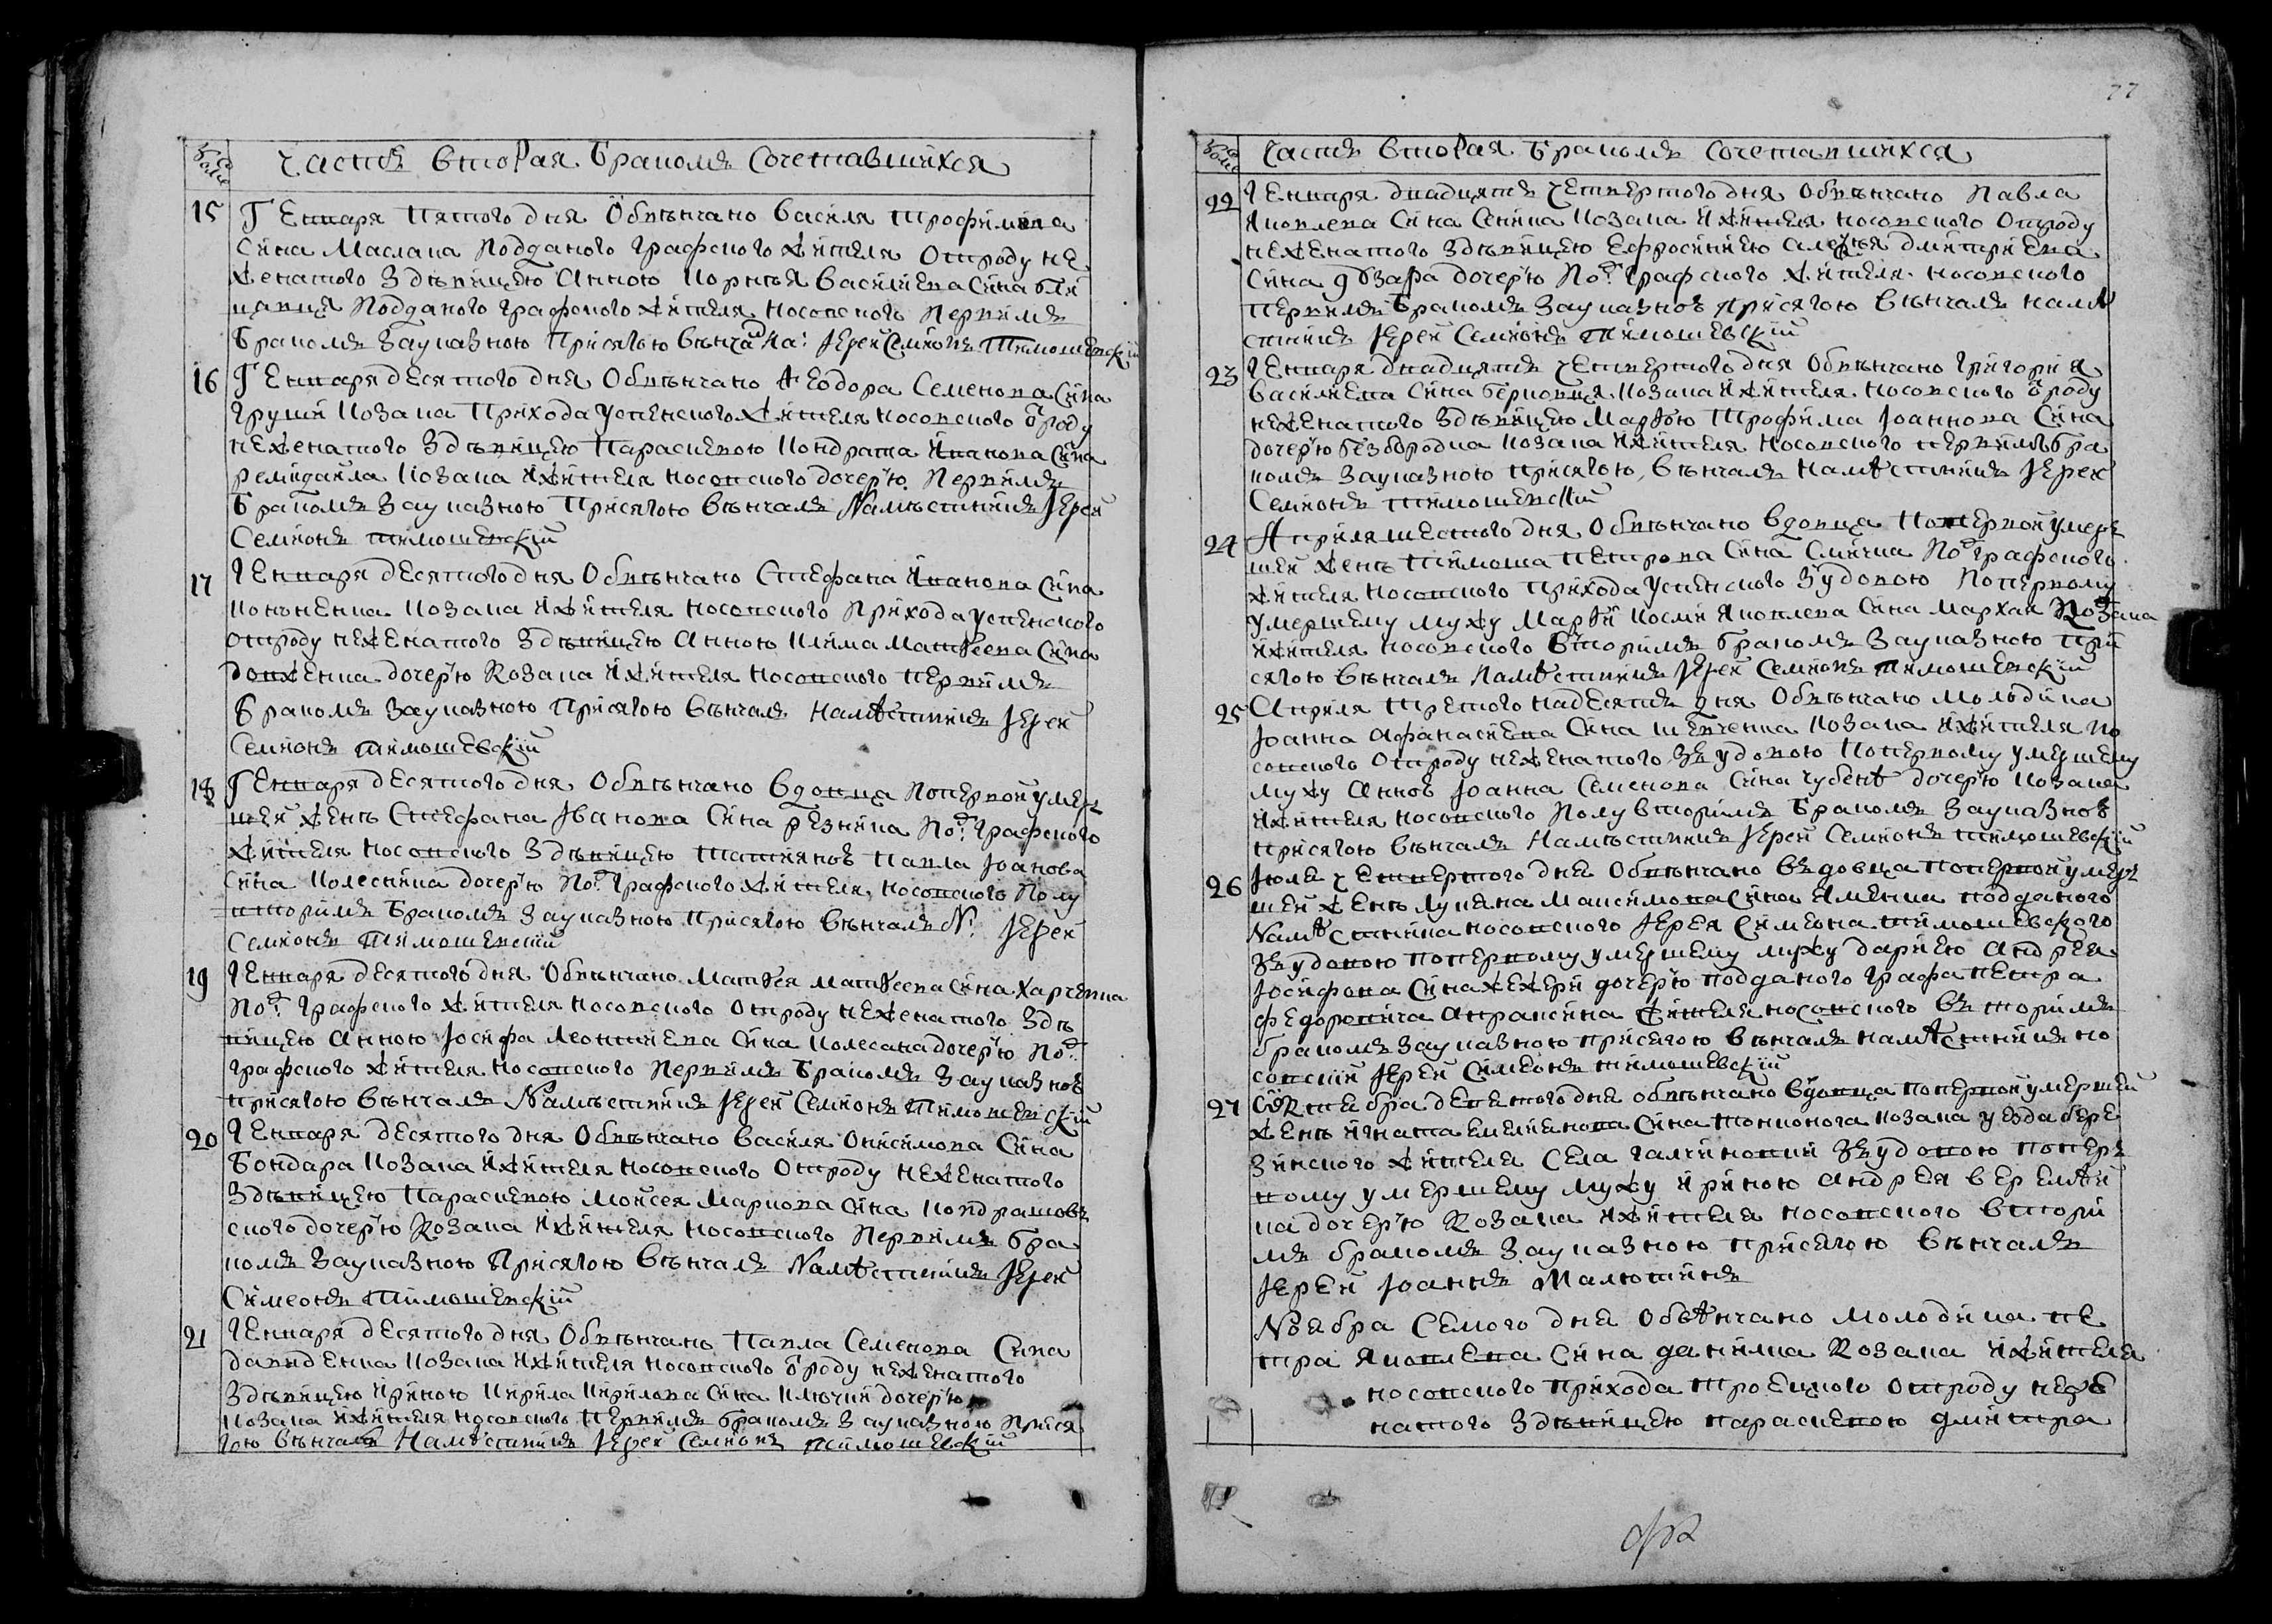 Часть вторая Бракомъ Сочетавшихся
15 Генваря Пятого дня Обвѣнчано Василя Трофимова
Сина Маслака Подданого Графского жителя Отроду не
женатого Здѣвицею Анною Корнѣя Василіева Сина
Подданого Графского жителя Носовского Первимъ
Бракомъ Зауказною Присягою вѣнчалъ На: Іерей Семіонъ Тимошевскій
16 Генваря десятого дня Обвѣнчано Ѳеодора Семенова Сина
Груши Козака Прихода Успенского жителя Носовского ѿроду
неженатого Здѣвицею Параскевою Кондрата Иванова Сина
Козака Ижителя Носовского дочерю Первимъ
Бракомъ Зауказною Присягою вѣнчалъ Намѣстникъ Іерей
Семіонъ Тимошевскій
17 Генваря десятого дня Обвѣнчано Стефана Иванова Сина
Козака Ижителя Носовского Прихода Успенского
отроду неженатого Здѣвицею Анною Клима Матѳеева Сина
Довженка дочерю Козака Ижителя Носовского первимъ
Бракомъ Зауказною Присягою вѣнчалъ Намѣстникъ Іерей
Семіонъ Тимошевскій
18 Генваря десятого дня Обвѣнчано Вдовца Попервой умер
шей женѣ Стефана Іванова Сина Резника Под: Графского
жителя Носовского Здѣвицею Татіяноѵ Павла Іоанова
Сина Колесника дочерю Под: Графского жителя Носовского Полу
вторимъ Бракомъ Зауказною Присягою вѣнчалъ N: Іерей
Семіонъ Тимошевскій
19 Генваря десятого дня Обвѣнчано Матѳея Матѳеева Сина Харченка
Под: Графского жителя Носовского Отроду неженатого Здѣ
вицею Анною Іосифа Леонтиева Сина Колесака дочерю Под:
Графского жителя Носовского Первимъ Бракомъ Зауказноѵ
присягою вѣнчалъ Намѣстникъ Іерей Семіонъ Тимошевскій
20 Генваря десятого дня Обвѣнчано Василя Онисимова Сина
Бондара Козака Ижителя Носовского Отроду неженатого
Здѣвицею Параскевою Моисея Маркова Сина Кондрашов
ского дочерю Козака Ижителя Носовского Первимъ бра
комъ Зауказною Присягою вѣнчалъ Намѣстникъ Іерей
Симеонъ Тимошевскій
21 Генваря десятого дня Обвѣнчано Павла Семенова Сина
Давиденка Козака Ижителя Носовского ѿроду неженатого
Здѣвицею Ириною Кирила Кирилова Сина Ключки дочерю
Козака Ижителя Носовского первимъ бракомъ Зауказною Прися
гою вѣнчалъ Намѣстникъ Іерей Семіонъ Тимошевскій
77
Часть вторая Бракомъ Сочетавшихся
22 Генваря двадцять четвертого дня Обвѣнчано Павла
Яковлева Сина Сенина Козака Ижителя Носовского Отроду
неженатого Здѣвицею Ефросиніею Алеѯѣя Дмитриева
Сина дочерю Под: Графского жителя Носовского
первимъ Бракомъ Зауказноѵ Присягою вѣнчалъ Намѣ
стникъ Іерей Семіонъ Тимошевскій
23 Генваря двадцять четвертого дня Обвѣнчано Григория
Василиева Сина Берковца Козака Ижителя Носовского ѿроду
неженатого Здѣвицею Марѳою Трофима Іоаннова Сина
дочерю Безбородка Козака Ижителя Носовского первимъ бра
комъ Зауказною присягою, вѣнчалъ Намѣстникъ Іерей
Семіонъ Тимошевскій
24 Априля шестого дня Обвѣнчано вдовца Попервой умер
шей женѣ Тимоша Петрова Сина Под Графского
жителя Носовского Прихода Успенского Зудовою Попервому
умершему мужу Марѳи Косми Яковлева Сина Мархая Козака
Ижителя Носовского вторимъ бракомъ Зауказною при
сягою вѣнчалъ Намѣстникъ Іерей Семіонъ Тимошевскій
25 Априля третого надесять дня Обвѣнчано молодика
Іоанна Афанасиева Сина Шевченка Козака Ижителя Но
совского Отроду неженатого Зъудовою Попервому умершему
мужу Анноѵ Іоанна Семенова Сина дочерю Козака
Ижителя Носовского Полувторимъ Бракомъ Зауказноѵ
присягою вѣнчалъ Намѣстникъ Іерей Семіонъ Тимошевскій
26 Іюля четвертого дня Обвѣнчано въдовца попервой умер
шей женѣ Лукяна Максимова Сина подданого
Намѣстника носовского Іерея Симеона Тимошевского
Зъудовою попервому умершему мужу Дариею Андрея
Іосифова Сина дочерю подданого графа Петра
Федоровича Апраксина жителя носовского въторимъ
бракомъ Зауказною присягою вѣнчалъ намѣстникъ но
совскій Іерей Симеонъ Тимошевскій
27 Октебра деветого дня обвѣнчано вдовца попервой умершей
женѣ Игната Сина Козака уезда бере
зинского жителя Села Зъудовою попер
вому умершему мужу Ириною Андрея Веремѣй
ка дочерю Козака Ижителя носовского втори
мъ бракомъ Зауказною присягою вѣнчалъ
Іерей Іоаннъ Малютинъ
Ноябра Семого дня Обвѣнчано молодика Пе
тра Яковлева Сина Данилка Козака Ижителя
носовского прихода Троецкого отроду неже
натого Здѣвицею параскевою Дмитра